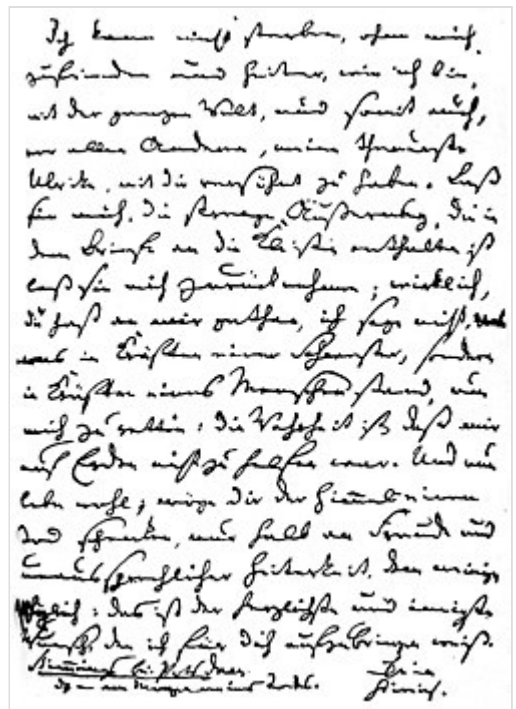 Ich kann nicht sterben, ohne mich,
zufrieden und heiter, wie ich bin,
mit der ganzen Welt, und somit auch,
vor allen Anderen, meine theuerste
Ulrike, mit Dir versöhnt zu haben. Laß
sie mich, die strenge Äußerung, die in
dem Briefe an die Kleisten enthalten ist
laß sie mich zurücknehmen; wirklich,
Du hast an mir gethan, ich sage nicht,
was in Kräften einer Schwester, sondern
in Kräften eines Menschen stand, um
mich zu retten: die Wahrheit ist, daß mir
auf Erden nicht zu helfen war. Und nun
lebe wohl; möge Dir der Himmel einen
Tod schenken, nur halb an Freude und
unaussprechlicher Heiterkeit, dem meinigen
gleich: das ist der herzlichste und innigste
Wunsch, den ich für Dich aufzubringen weiß.
Stimmings bei Potsdam. Dein
d. – am Morgen meines Todes. Heinrich.